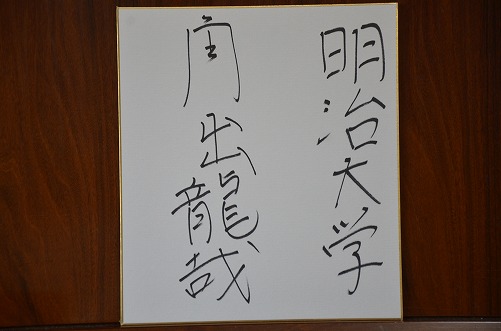 明治大学
角出龍哉